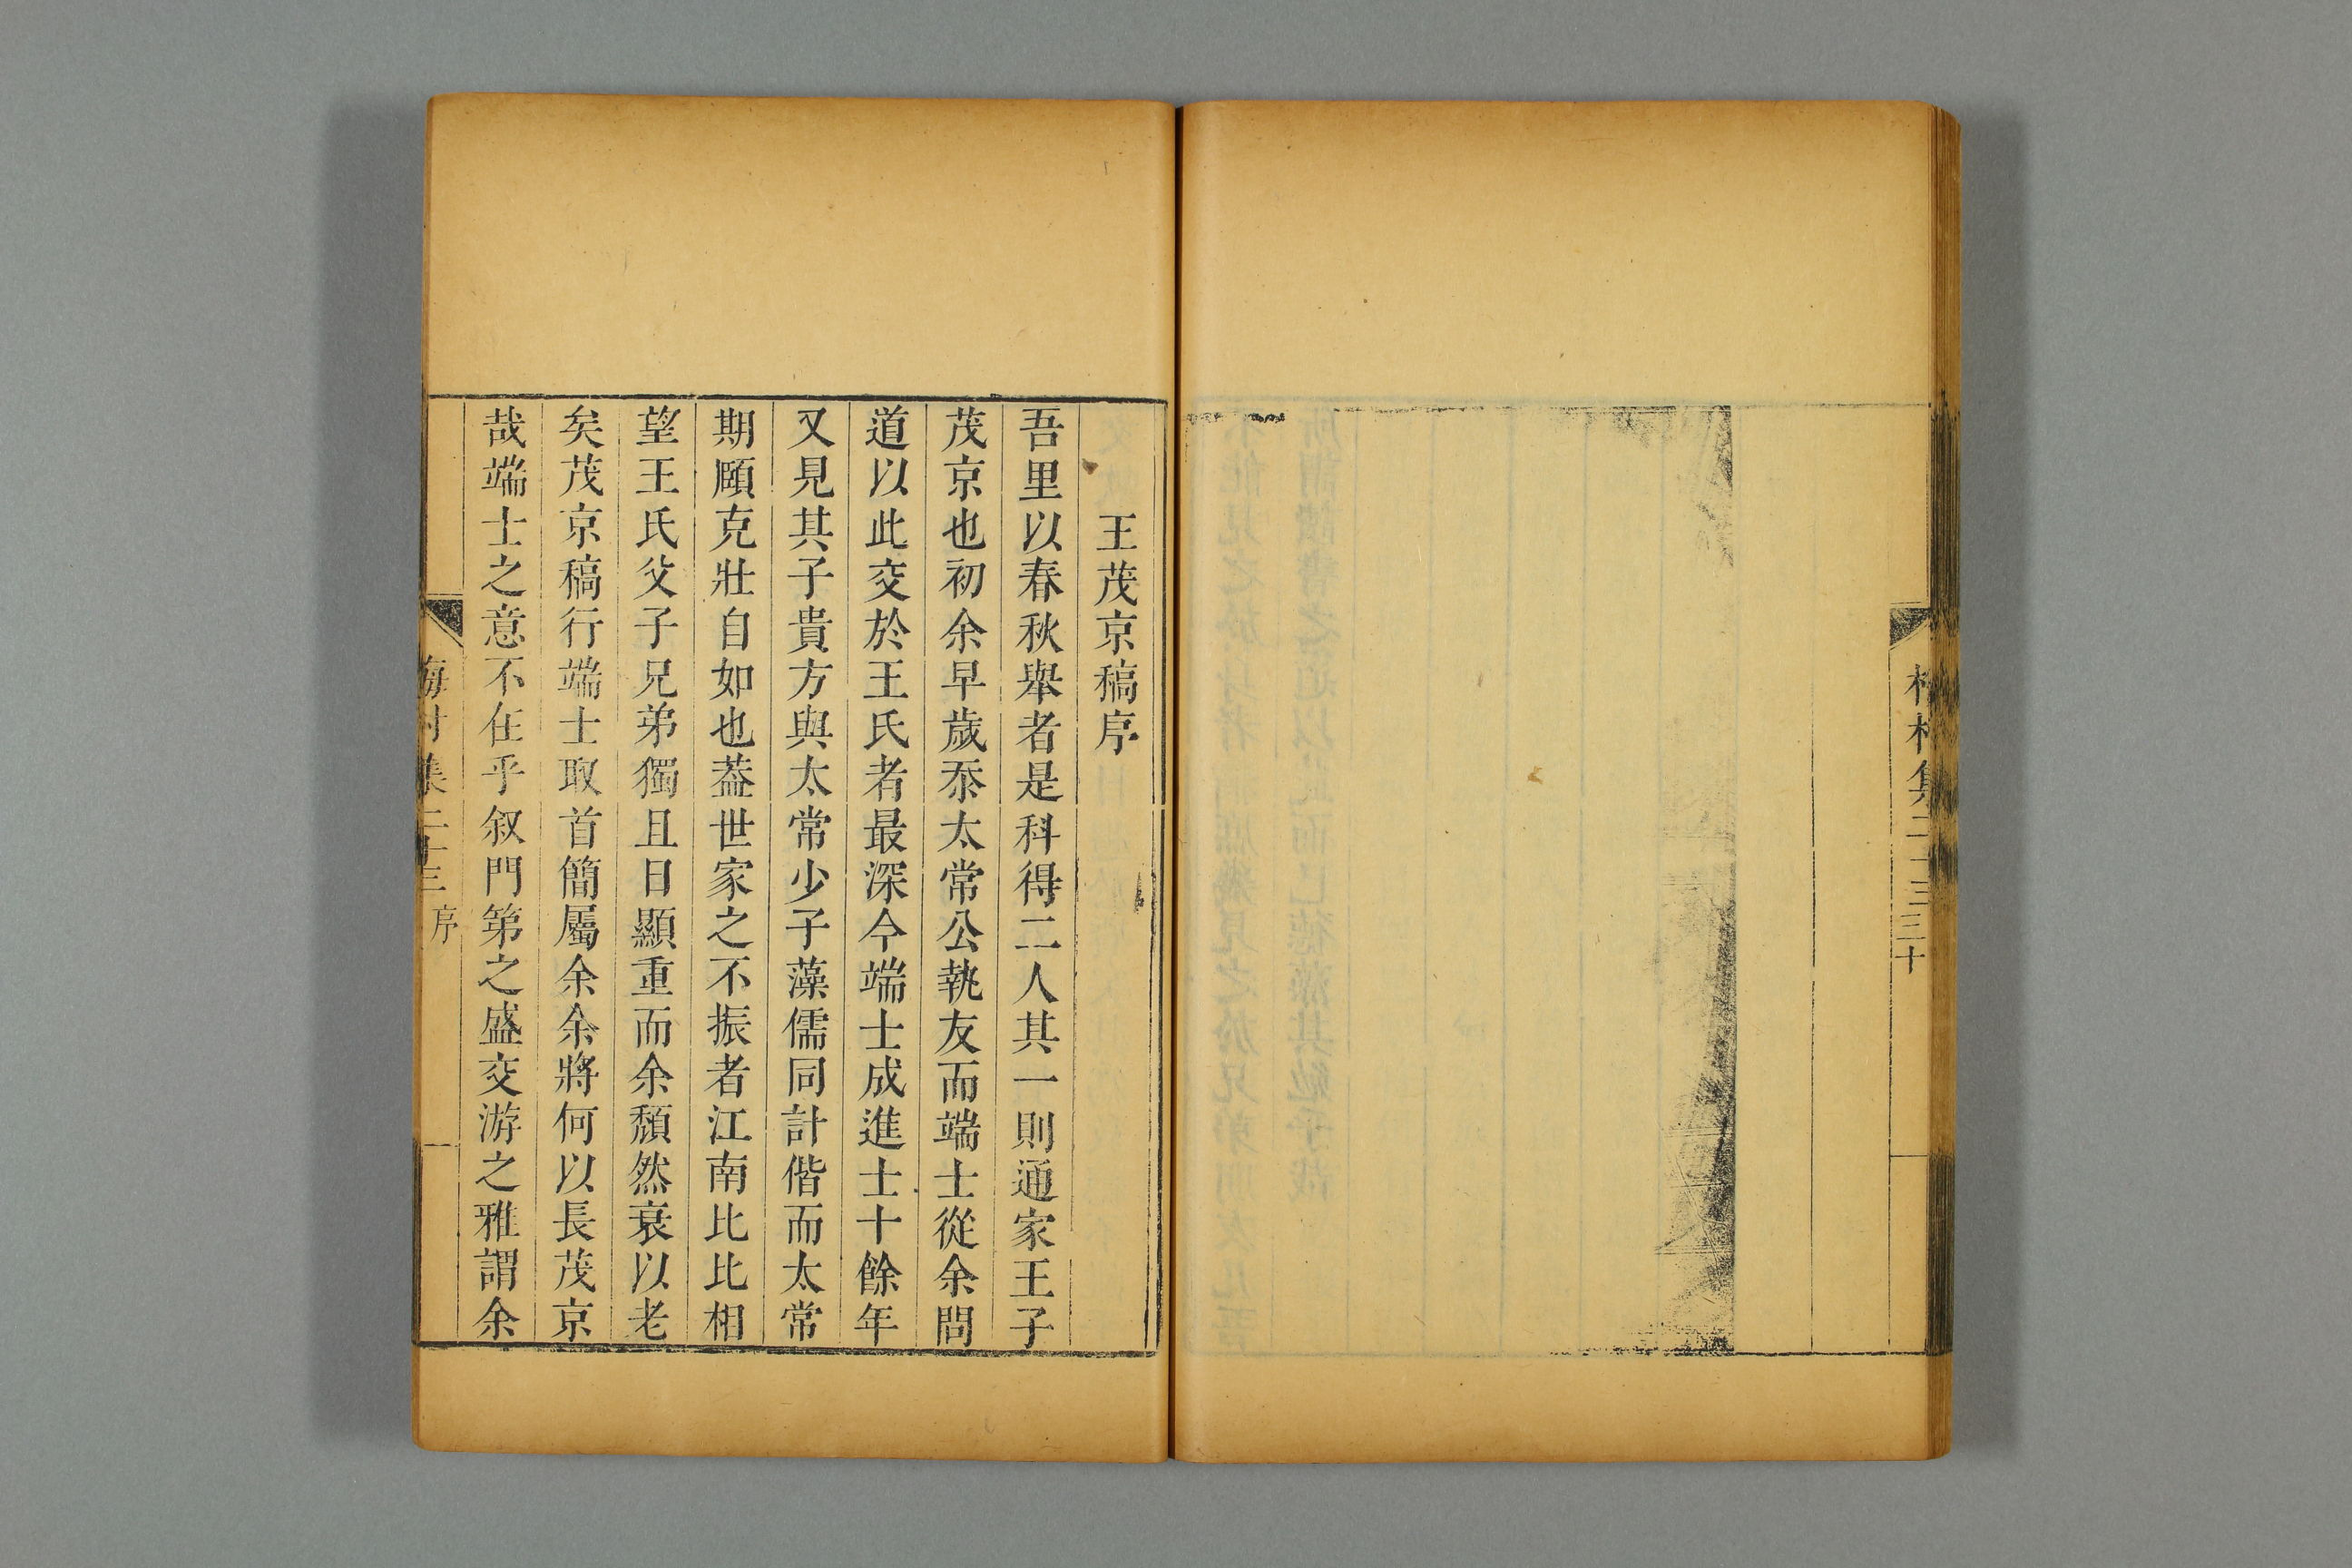 梅村集二十三
三十
王茂京稿序
吾里以春秋舉者是科得二人其一則通家王子
茂京也初余早歲忝太常公執友而端士從余問
道以此交於王氏者最深今端士成進士十餘年
又見其子貴方與太常少子藻儒同計偕而太常
期頤克壯自如也葢世家之不振者江南比比相
望王氏父子兄弟獨且日顯重而余頹然衰以老
矣茂京稿行端士取首簡屬余余將何以長茂京
哉端士之意不在乎叙門第之盛交游之雅謂余
梅村集二十三 序